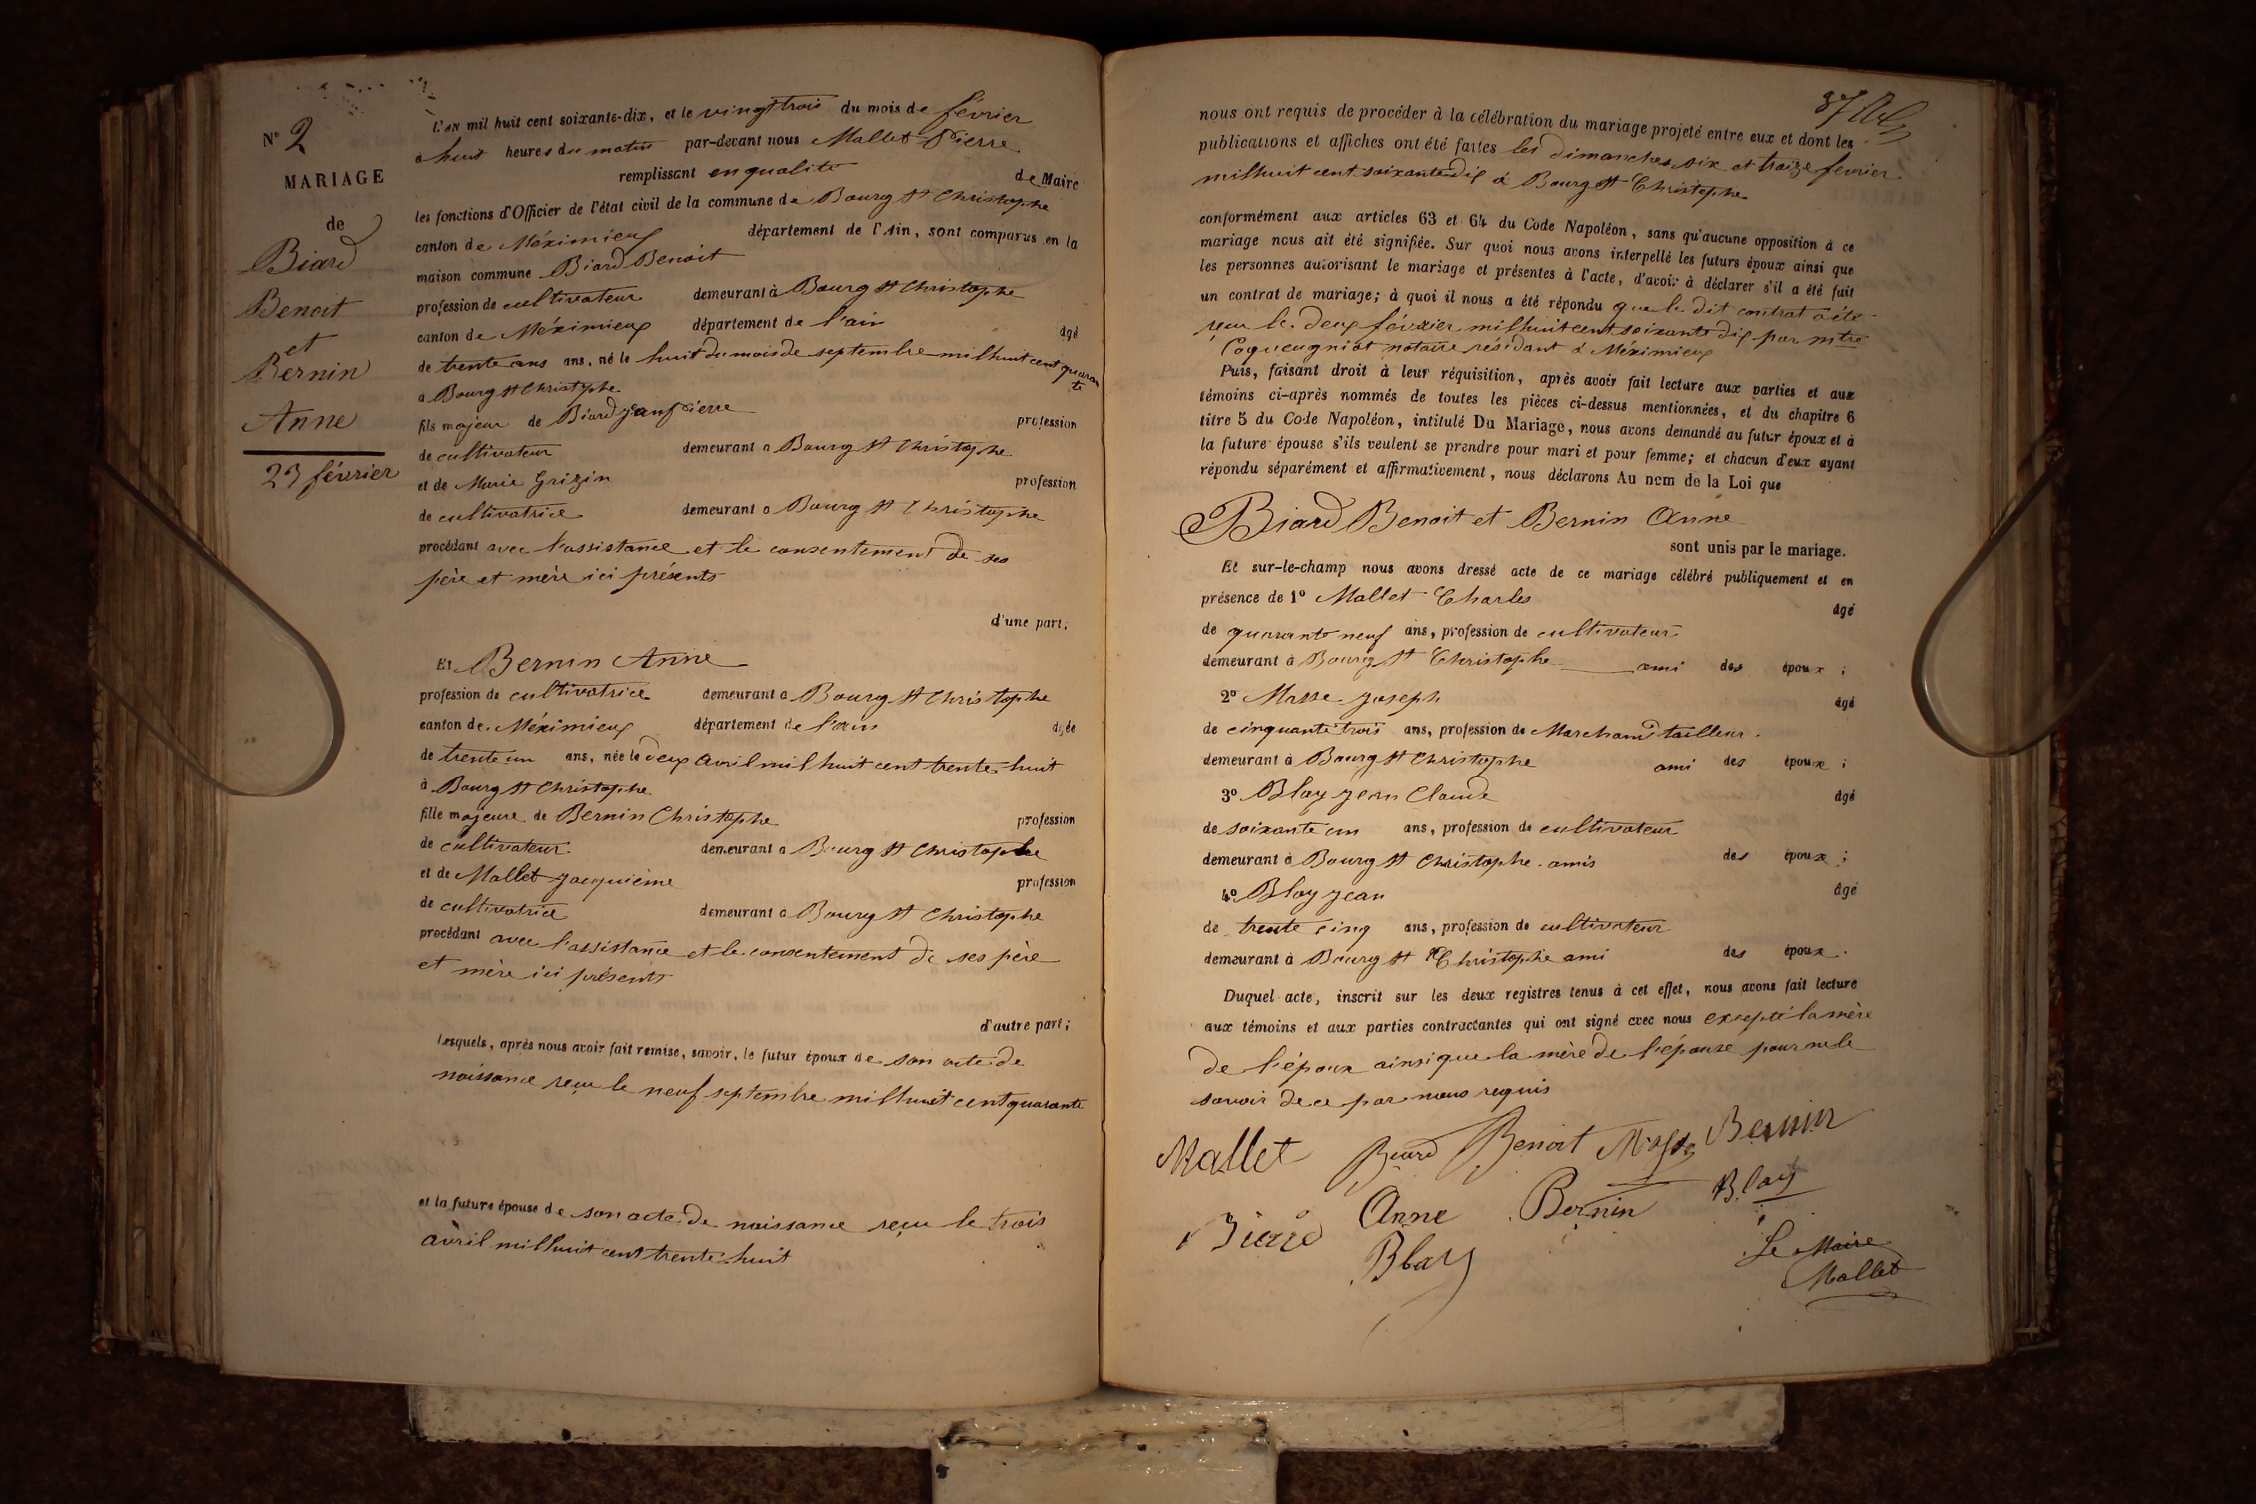 N° 2
MARIAGE
de
Biard
Benoit
et
Bernin
Anne
23 février
L'AN mil huit cent soixante-dix, et le vingt trois du mois de février
à huit heures du matin par-devant nous Mallet Pierre
remplissant en qualité de Maire
les fonctions d'Officier de l'état civil de la commune de Bourg St Christophe
canton de Méximieux département de l'Ain, sont comparus en la
maison commune Biard Benoit
profession de cultivateur demeurant à Bourg St Christophe
canton de Méximieux département de l'ain âgé
de trente ans ans, né le huit du mois de septembre mil huit cent quaran
te
à Bourg St Christophe
fils majeur de Biard Jean Pierre profession
de cultivateur demeurant à Bourg St Christophe
et de Marie Grizin profession
de cultivatrice demeurant à Bourg St Christophe
procédant avec l'assistance et le consentement de ses
père et mère ici présents
d'une part;
Et Bernin Anne
profession de cultivatrice demeurant à Bourg St Christophe
canton de Méximieux département de l'ain âgée
de trente un ans, née le deux avril mil huit cent trente huit
à Bourg St Christophe
fille majeure de Bernin Christophe profession
de cultivateur demeurant à Bourg St Christophe
et de Mallet Jacquième profession
de cultivatrice demeurant à Bourg St Christophe
procédant avec l'assistance et le consentement de ses père
et mère ici présents
d'autre part;
Lesquels, après nous avoir fait remise, savoir, le futur époux de son acte de
naissance reçu le neuf septembre mil huit cent quarante
et la future épouse de son acte de naissance reçu le trois
avril mil huit cent trente huit
37
nous ont requis de procéder à la célébration du mariage projeté entre eux et dont les
publications et affiches ont été faites les dimanches six et treize fevrier
mil huit cent soixante dix à Bourg St Christophe
conformément aux articles 63 et 64 du Code Napoléon, sans qu'aucune opposition à ce
mariage nous ait été signifiée. Sur quoi nous avons interpellé les futurs époux ainsi que
les personnes autorisant le mariage et présentes à l'acte, d'avoir à déclarer s'il a été fait
un contrat de mariage; à quoi il nous a été répondu que le dit contrat a été
reçu le deux février mil huit cent soixante dix par mtre
Coqueugniot notaire résidant à Méximieux
Puis, faisant droit à leur réquisition, après avoir fait lecture aux parties et aux
témoins ci-après nommés de toutes les pièces ci-dessus mentionnées, et du chapitre 6
titre 5 du Code Napoléon, intitulé Du Mariage, nous avons demandé au futur époux et à
la future épouse s'ils veulent se prendre pour mari et pour femme; et chacun d'eux ayant
répondu séparément et affirmativement, nous déclarons Au nom de la Loi que
Biard Benoit et Bernin Anne
sont unis par le mariage.
Et sur-le-champ nous avons dressé acte de ce mariage célébré publiquement et en
présence de 1° Mallet Charles âgé
de quarante neuf ans, profession de cultivateur
demeurant à Bourg St Christophe ami des époux;
2° Masse Joseph âgé
de cinquante trois ans, profession de Marchand tailleur
demeurant à Bourg St Christophe ami des époux;
3° Blay Jean Claude âgé
de soixante un ans, profession de cultivateur
demeurant à Bourg St Christophe amis des époux;
4° Blay Jean âgé
de trente cinq ans, profession de cultivateur
demeurant à Bourg St Christophe ami des époux.
Duquel acte, inscrit sur les deux registres tenus à cet effet, nous avons fait lecture
aux témoins et aux parties contractantes qui ont signé avec nous excepté la mère
de l'époux ainsi que la mère de l'épouse pour ne le
savoir de ce par nous requis
Mallet Biard Benoit Masse Bernin
Biard Anne Bernin Blay
Blay
Le Maire
Mallet